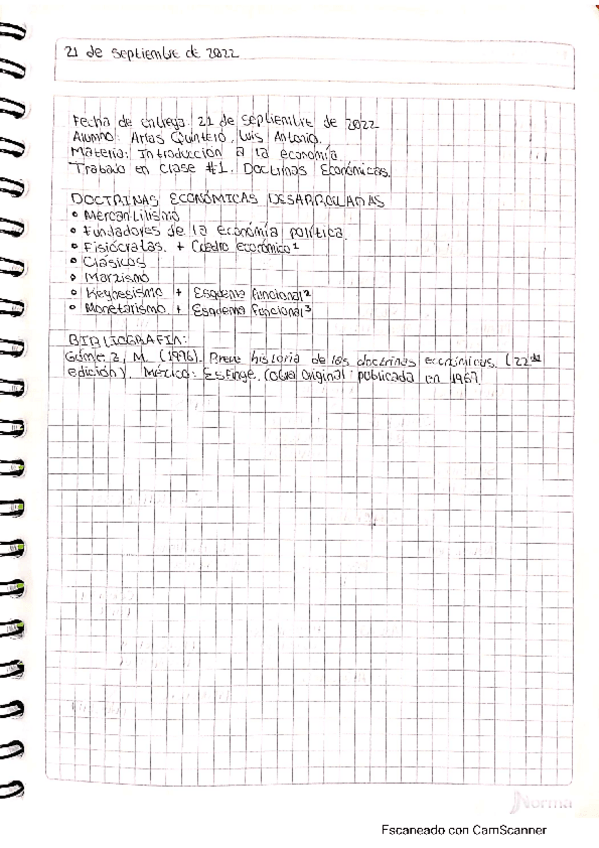 21 de septiembre de 2022
Fecha de entrega: 21 de septiembre de 2022
Alumno: Arias Quintero, Luis Antonio.
Materia: Introducción a la economía.
Trabajo en clase #1. Doctrinas Económicas.
DOCTRINAS ECONÓMICAS DESARROLLADAS
• Mercantilismo
• Fundadores de la economía política.
• Fisiócratas. + Cuadro económico¹
• Clásicos
• Marxismo
• Keynesismo + Esquema funcional²
• Monetarismo + Esquema funcional³
BIBLIOGRAFIA:
Gómez, M. (1996). Breve historia de las doctrinas económicas. (22ª
edición). México: Esfinge. (Obra original publicada en 1967.
Norma
Escaneado con CamScanner